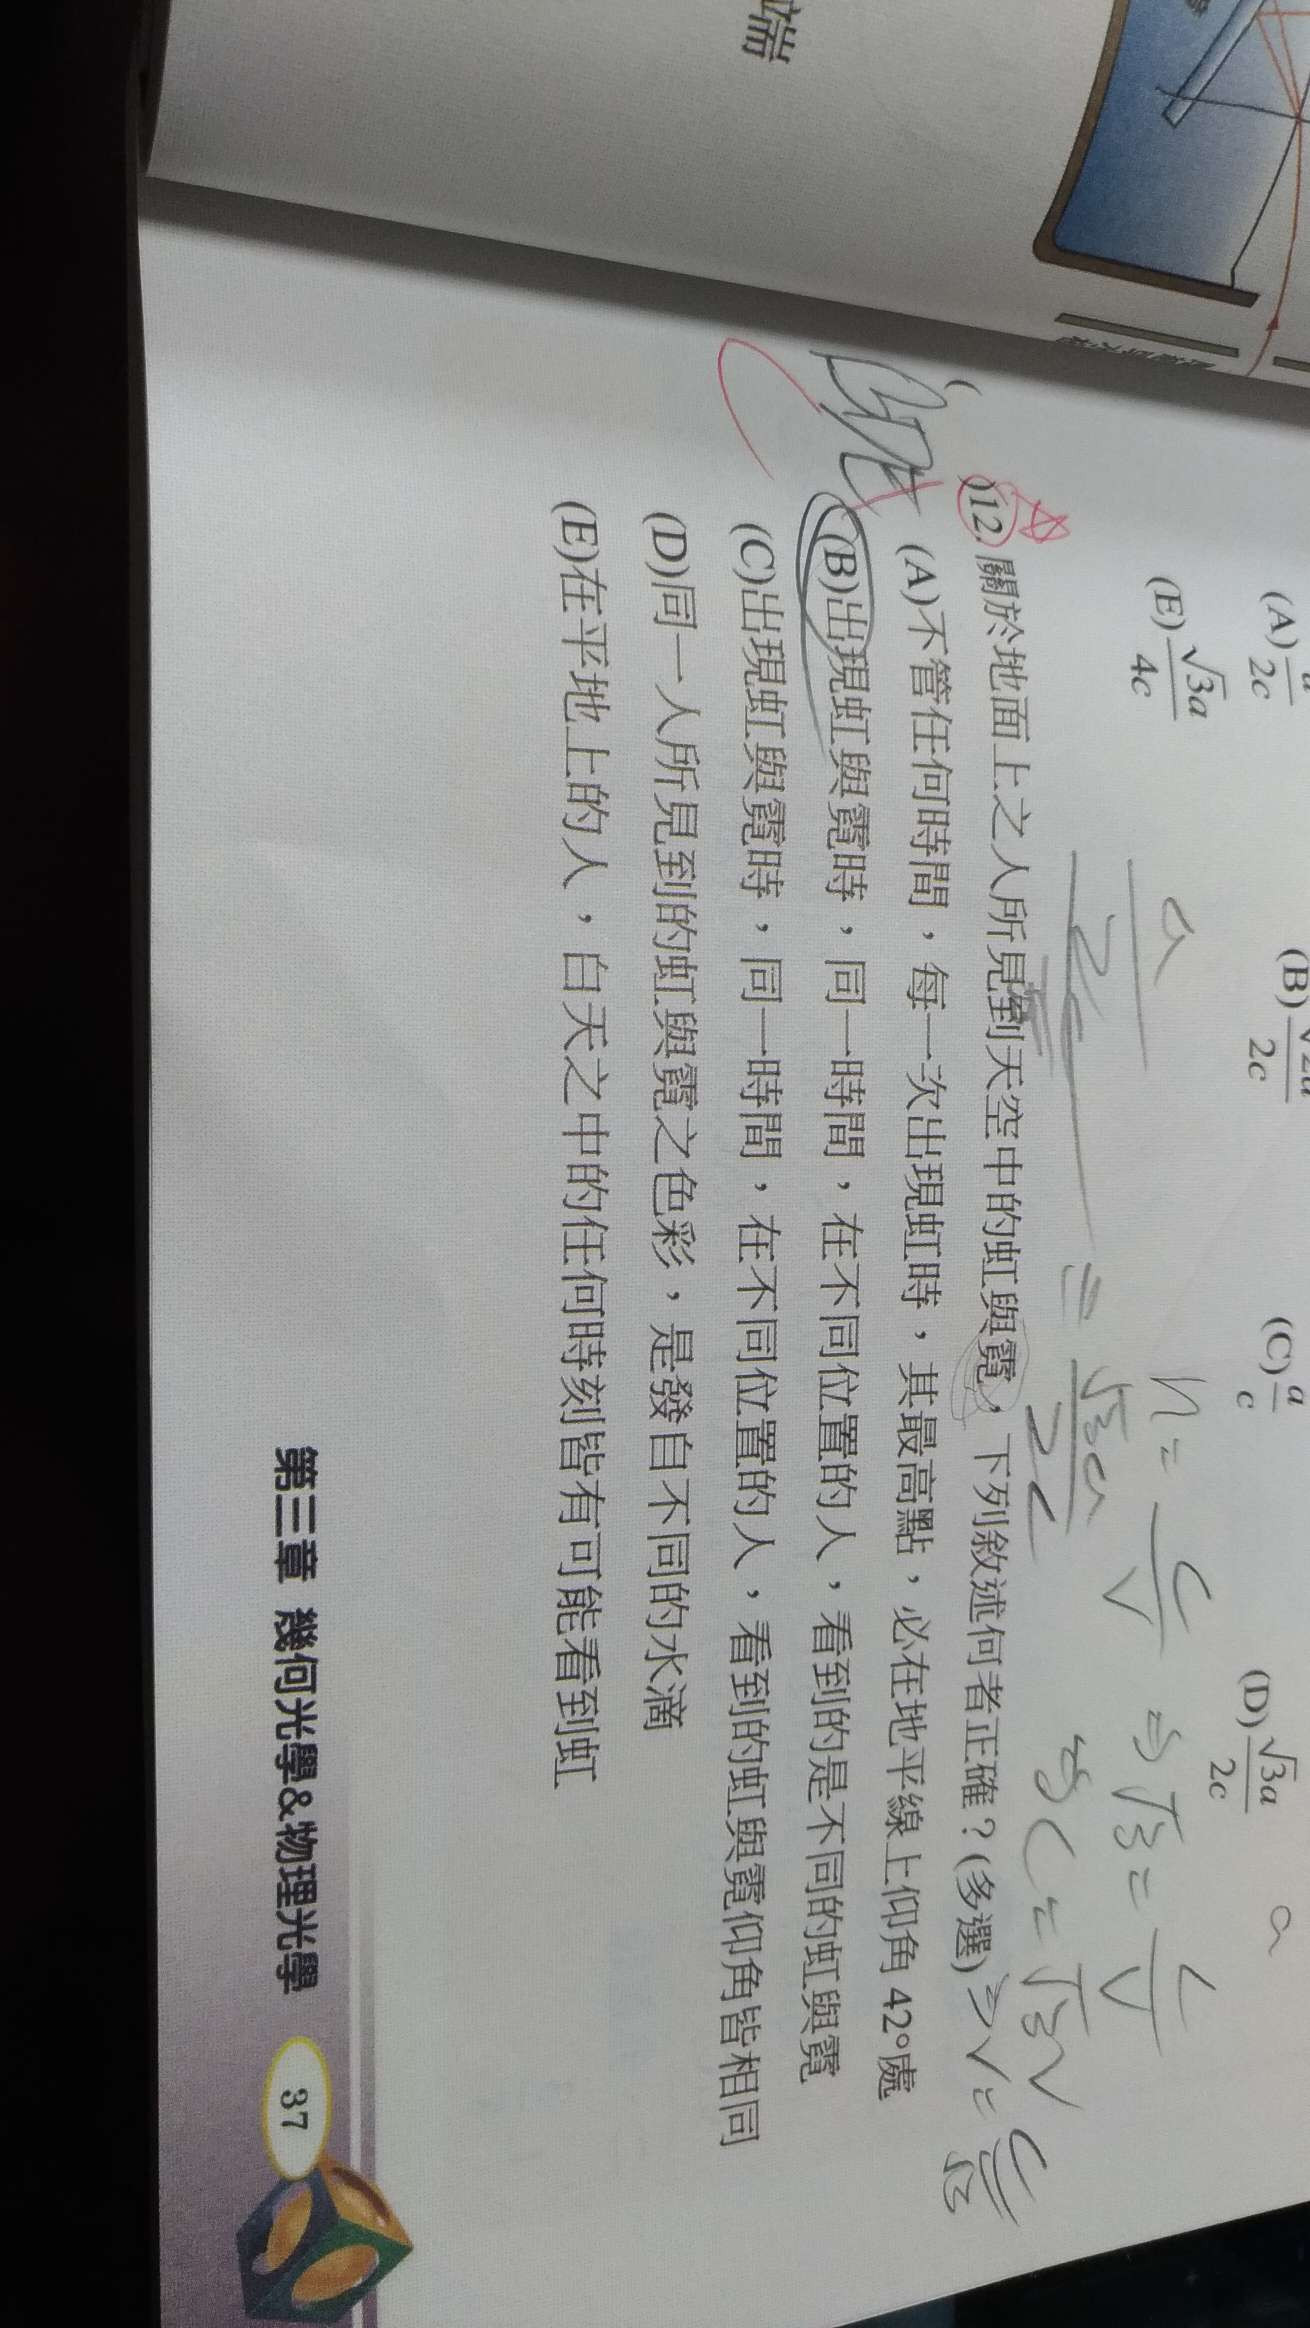 端
(A) a/2c (B) √2a/2c (C) a/c (D) √3a/2c
(E) √3a/4c
a
a
n = c/v ⇒ √3 = c/v
= √3a/2c
⇒ c = √3v
⇒ v = c/√3
( )12. 關於地面上之人所見到天空中的虹與霓，下列敘述何者正確？(多選)
(A)不管任何時間，每一次出現虹時，其最高點，必在地平線上仰角 42°處
(B)出現虹與霓時，同一時間，在不同位置的人，看到的是不同的虹與霓
(C)出現虹與霓時，同一時間，在不同位置的人，看到的虹與霓仰角皆相同
(D)同一人所見到的虹與霓之色彩，是發自不同的水滴
(E)在平地上的人，白天之中的任何時刻皆有可能看到虹
第三章 幾何光學&物理光學 37